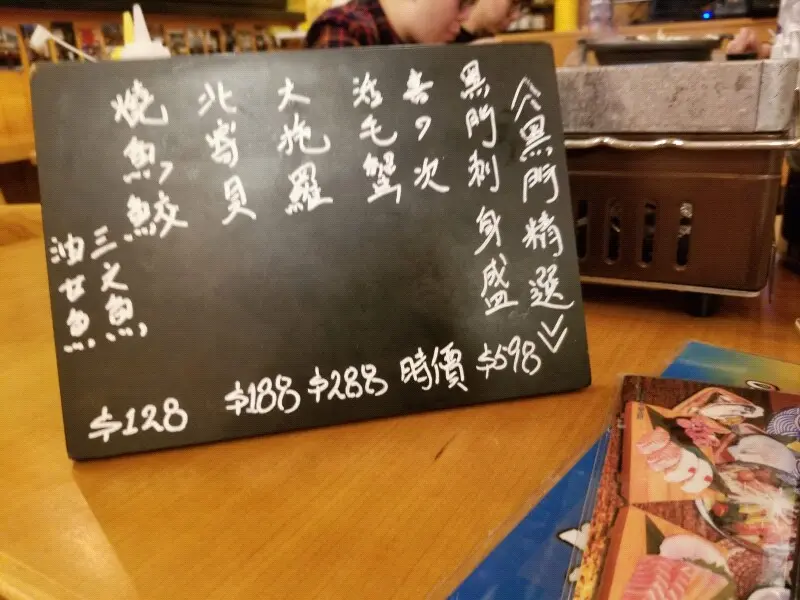 《黑門精選》
黑門刺身盛 $598
喜の次
活毛蟹 時價
大拖羅 $288
北寄貝 $188
燒魚,鮫
三文魚,
油甘魚 $128